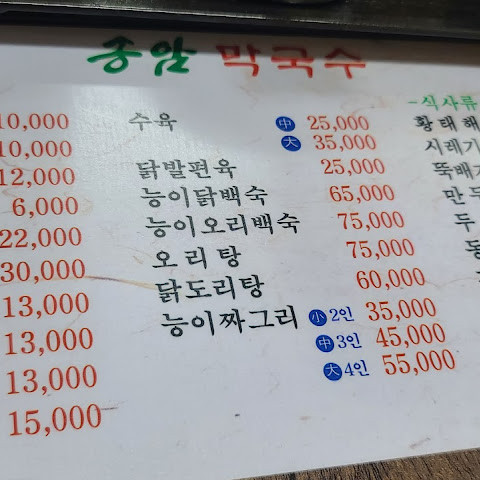 송암 막국수
10,000
10,000
12,000
6,000
22,000
30,000
13,000
13,000
13,000
15,000
수육 中 25,000
大 35,000
닭발편육 25,000
능이닭백숙 65,000
능이오리백숙 75,000
오리탕 75,000
닭도리탕 60,000
능이짜그리 小 2인 35,000
中 3인 45,000
大 4인 55,000
-식사류
황태해
시레기
뚝배
만두
두